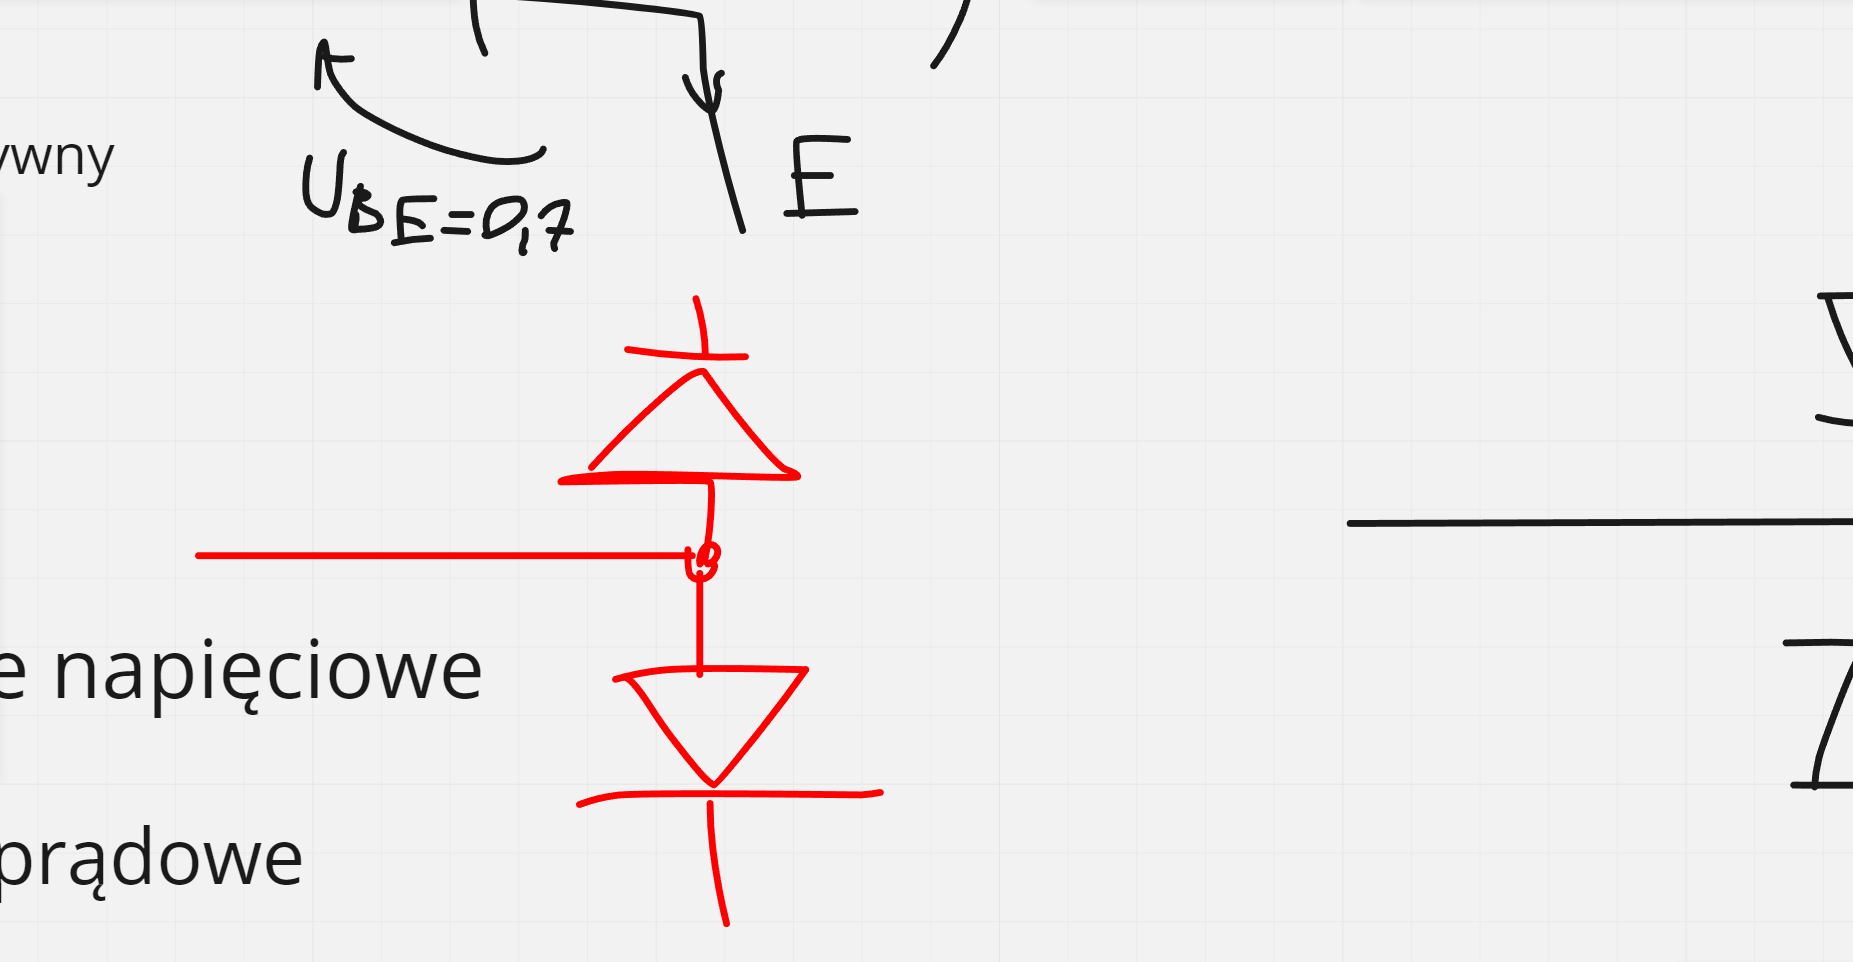 ywny
E
U_BE=0,7
e napięciowe
prądowe